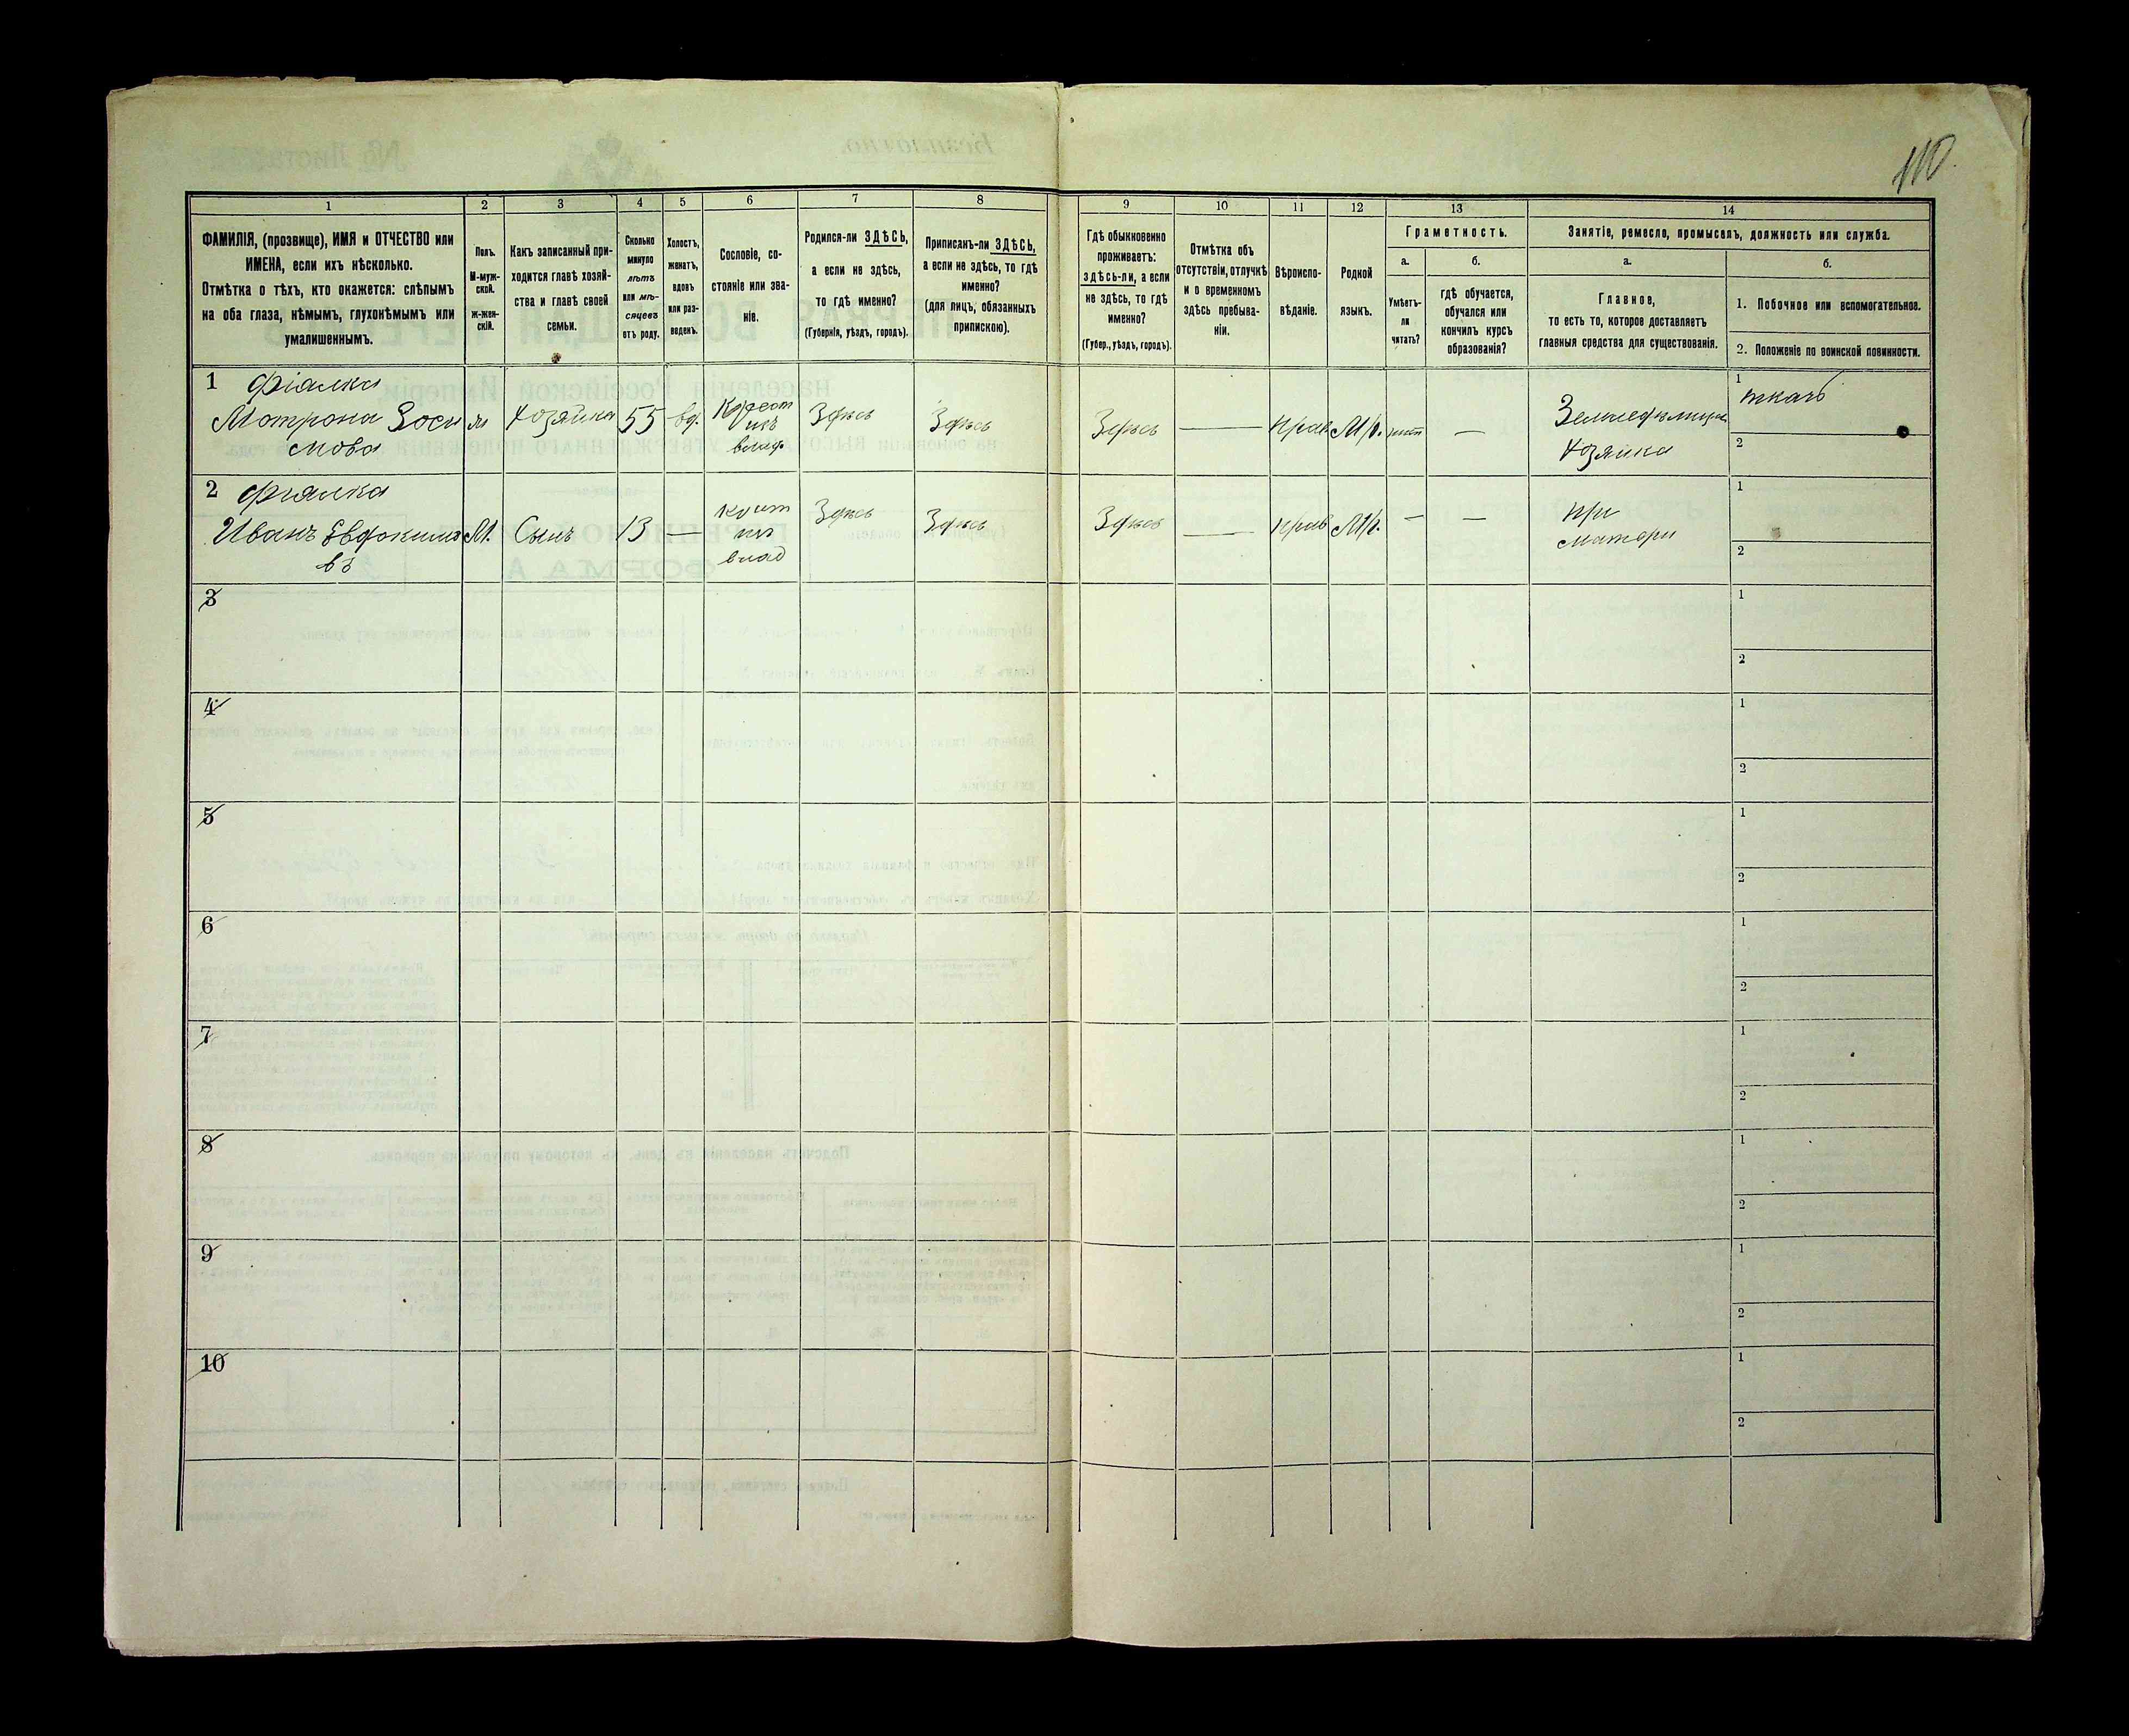 110
1
2
3
4
5
6
7
8
9
10
11
12
13
14
ФАМИЛІЯ, (прозвище), ИМЯ и ОТЧЕСТВО или
ИМЕНА, если ихъ нѣсколько.
Отмѣтка о тѣхъ, кто окажется: слѣпымъ
на оба глаза, нѣмымъ, глухонѣмымъ или
умалишеннымъ.
Полъ.
М-муж-
ской.
Ж-жен-
скій.
Какъ записанный при-
ходится главѣ хозяй-
ства и главѣ своей
семьи.
Сколько
минуло
лѣтъ
или мѣ-
сяцевъ
отъ роду.
Холостъ,
женатъ,
вдовъ
или раз-
веденъ.
Сословіе, со-
стояніе или зва-
ніе.
Родился-ли ЗДѢСЬ,
а если не здѣсь,
то гдѣ именно?
(Губернія, уѣздъ, городъ).
Приписанъ-ли ЗДѢСЬ,
а если не здѣсь, то гдѣ
именно?
(для лицъ, обязанныхъ
припискою).
Гдѣ обыкновенно
проживаетъ:
ЗДѢСЬ-ЛИ, а если
не здѣсь, то гдѣ
именно?
(Губер., уѣздъ, городъ).
Отмѣтка объ
отсутствіи, отлучкѣ
и о временномъ
здѣсь пребыва-
ніи.
Вѣроиспо-
вѣданіе.
Родной
языкъ.
Грамотность.
а.
Умѣетъ-
ли
читать?
б.
гдѣ обучается,
обучался или
кончилъ курсъ
образованія?
Занятіе, ремесло, промыселъ, должность или служба.
а.
Главное,
то есть то, которое доставляетъ
главныя средства для существованія.
б.
1. Побочное или вспомогательное.
2. Положеніе по воинской повинности.
1 Фіалка
Мотрона Зоси
мова
Хозяйка
55
вд.
Крест
изъ
влад
Здѣсь
Здѣсь
Здѣсь
—
Прав
М/р.
нѣтъ
—
Хозяйка
1
ткачъ
2
2 Фіалка
Иванъ Евдокимо
въ
М.
Сынъ
13
—
крест
изъ
влад
Здѣсь
Здѣсь
Здѣсь
—
прав
М/р.
—
—
при
матери
1
2
3
1
2
4
1
2
5
1
2
6
1
2
7
1
2
8
1
2
9
1
2
10
1
2